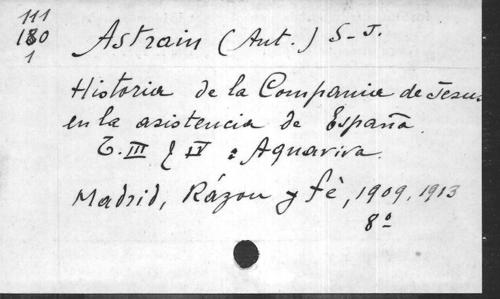 111
180
1
Astrain (Ant.) S-J.
Historia de la Compania de Jesus
en la asistencia de España.
T. III & IV : Aquaviva.
Madrid, Rázon y fè, 1909, 1913
8º